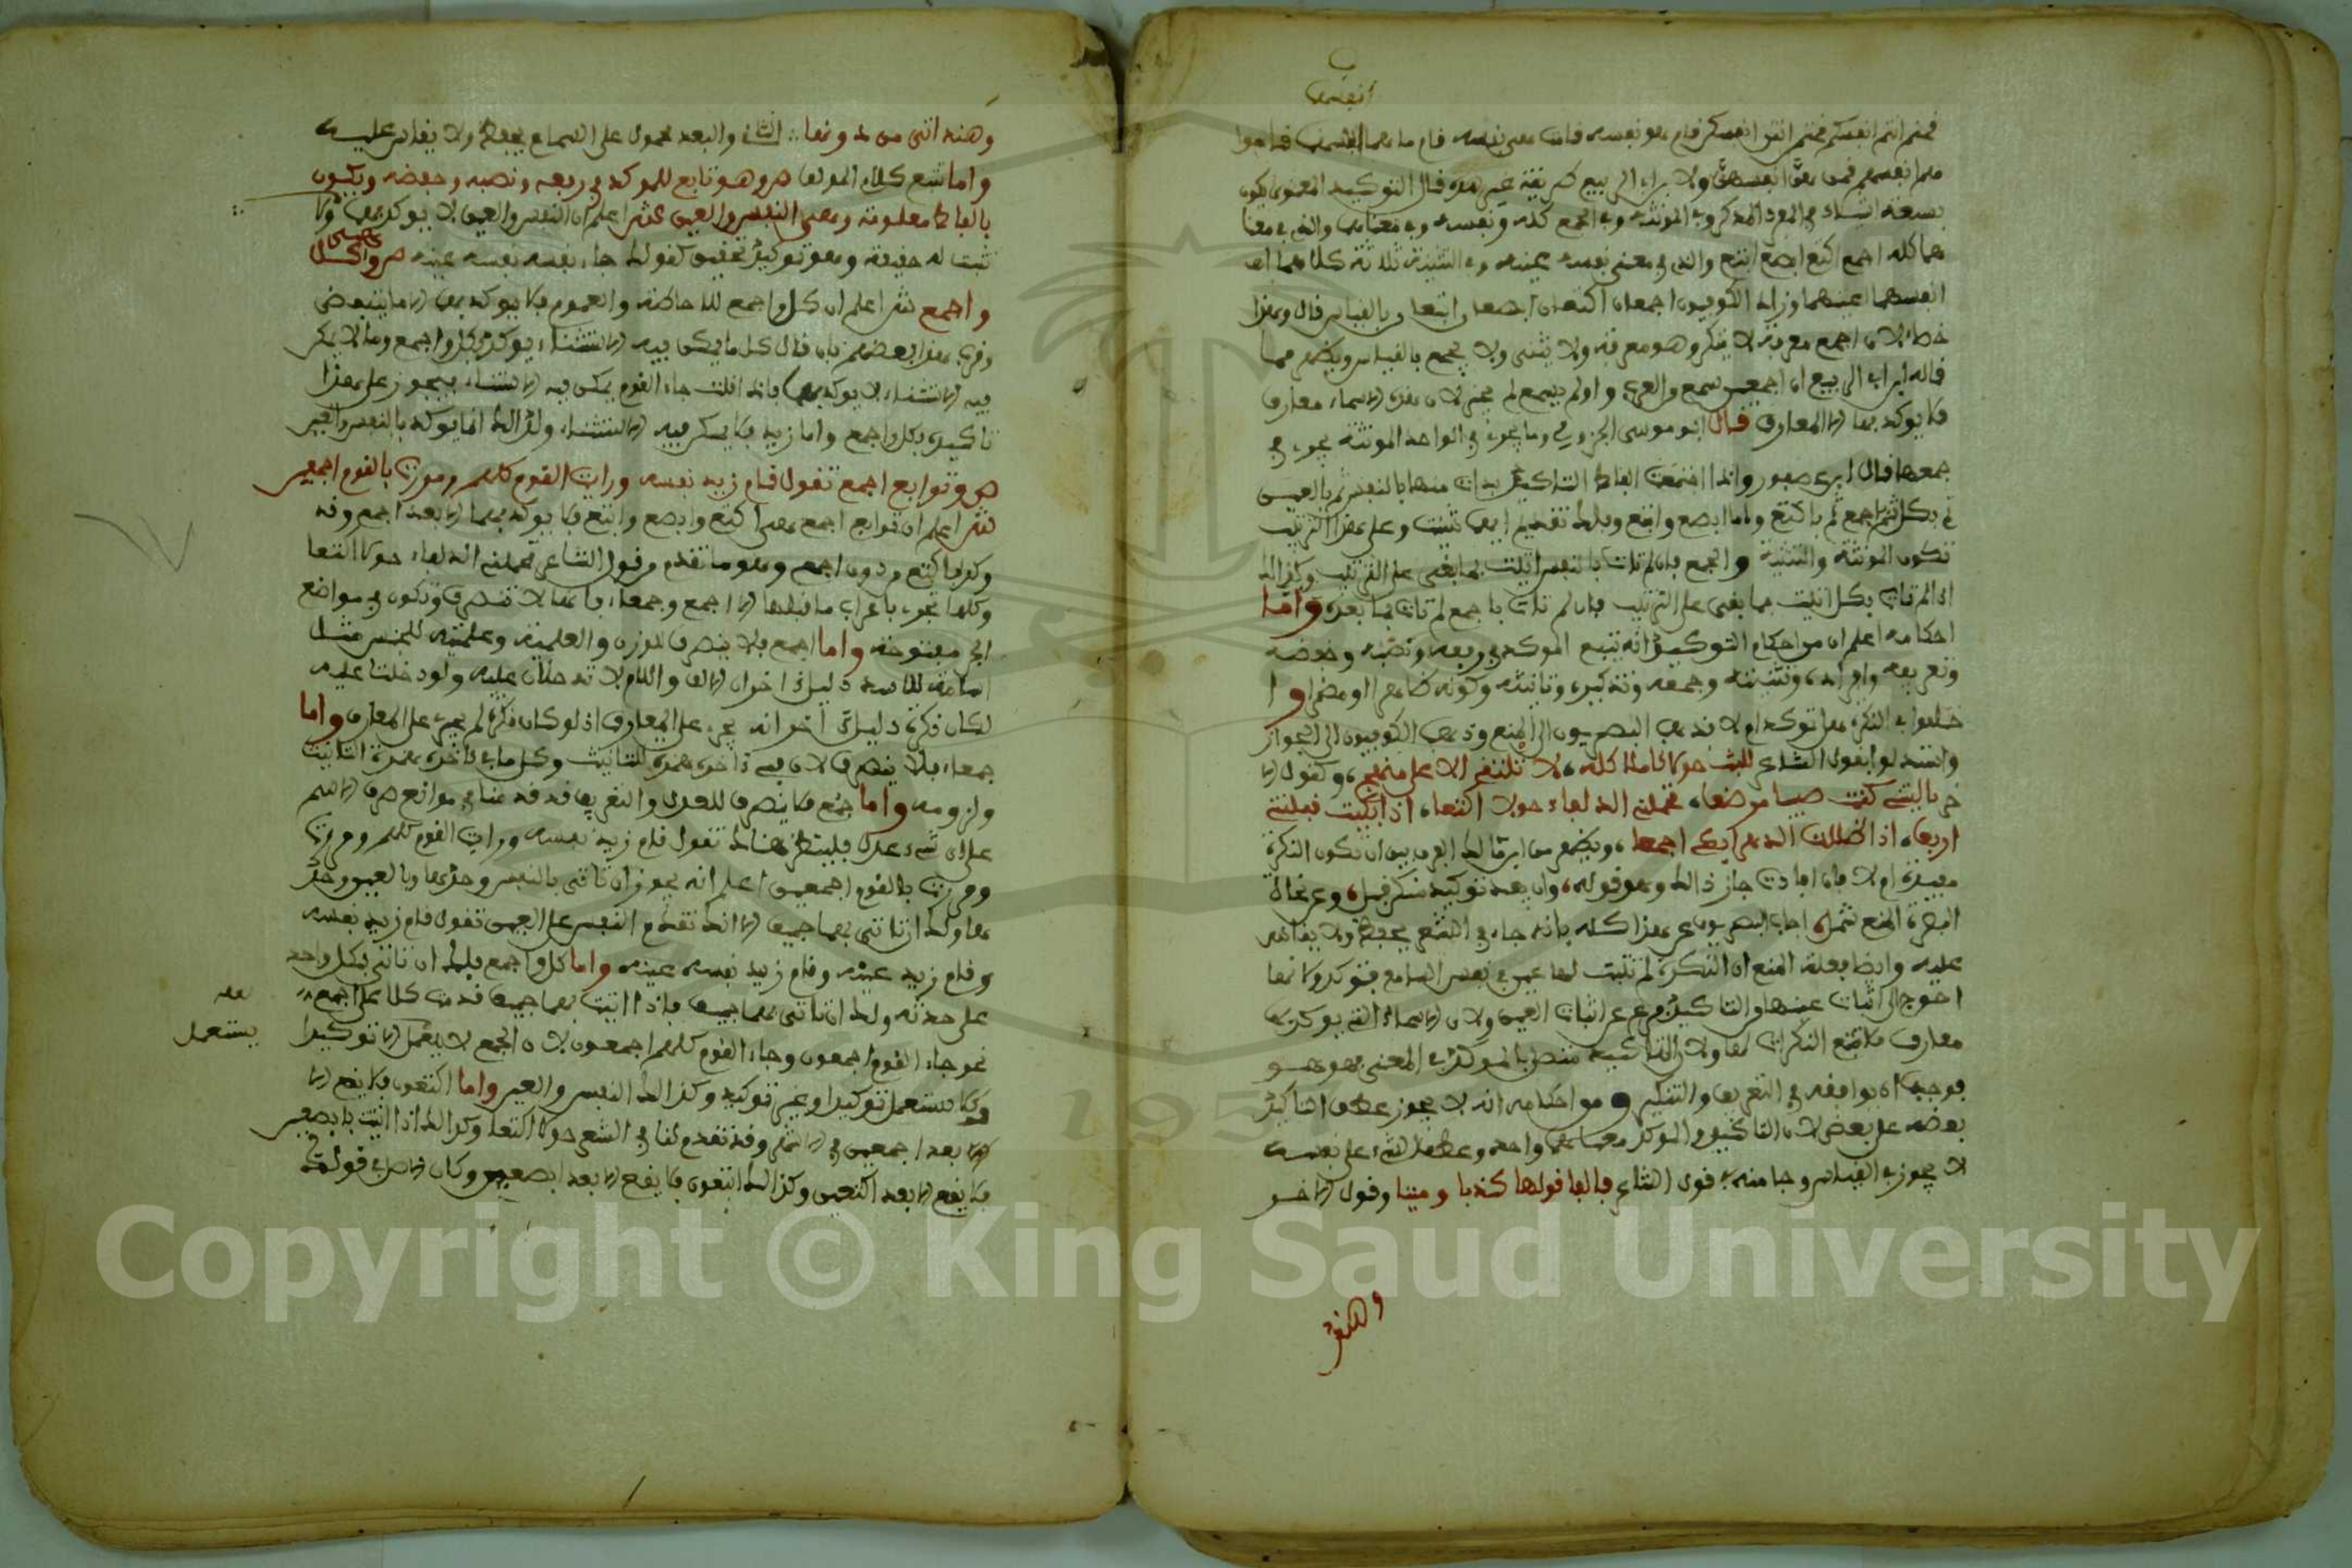 انفسهما
قمتم انتم انفسكم قمتن انتن انفسكن قام هو نفسه قامت هي نفسها قام ما هما انفسهما قاموا
هم انفسهم قمن هن انفسهن ولابن ابي الربيع طريقة غير هذه قال التوكيد المعنوي يكون
بسبعة اشياء في المفرد المذكر وفي المونثة وفي الجمع كله ونفسه وفي معناه والذي في معنا
هما كله اجمع اكتع ابصع ابتع والذي في معنى نفسه عينه وفي التثنية ثلاثة كلاهما
انفسهما اعينهما وزاد الكوفيون اجمعان اكتعان ابصعان ابتعان بالقياس قال وهذا
خطا لان اجمع معرفة لا ينكر وهو معرفة ولا يثنى ولا يجمع بالقياس ويظهر مما
قاله ابن ابي الربيع ان اجمعين سمع من العرب ولو لم يسمع لم يجز لان هذه الاسماء معارف
فلا يوكد بها الا المعارف قال ابو موسى الجزولي وما يجري في الواحد المونثة يجري في
جمعها قال ابن عصفور واذا اجتمعت الفاظ التاكيد بدات منها بالنفس ثم بالعين
ثم بكل ثم اجمع ثم باكتع واما ابصع وابتع فلك تقديم ايهما شئت وعلى هذا الترتيب
تكون المونثة والتثنية والجمع فان لم تات بالنفس اتيت بما بقي على الترتيب وكذالك
اذا لم تات بكل اتيت بما بقي على الترتيب فان لم تات باجمع لم تات بما بعده واما
احكامه اعلم ان من احكام التوكيد انه يتبع الموكد في رفعه ونصبه وخفضه
وتعريفه وافراده وتثنيته وجمعه وتذكيره وتانيثه وكونه ظاهرا او مضمرا و ا
ختلفوا في النكرة هل توكد ام لا فذهب البصريون الى المنع وذهب الكوفيون الى الجواز
واستدلوا بقول الشاعر للبث حولا كاملا كله، لا نلتقي الا على منهج، وكقول الا
خر يا ليتني كنت صبيا مرضعا، تحملني الذلفاء حولا اكتعا، اذا بكيت قبلتني
اربعا، اذا ظللت الدهر ابكي اجمعا،
مفيدة ام لا فان افادت جاز ذالك وهو قوله، وان يفد توكيد منكور قبل، وعن نحاة
البصرة المنع شمل، اجاب البصريون عن هذا كله بانه جاء في الشعر يحفظ ولا يقاس
عليه وايضا فعلة المنع ان النكرة لم تثبت لها عين في نفس السامع فتوكد وانما
احوج الى اثبات عينها والتاكيد فرع عن اثبات العين ولان الاسماء التي يوكد بها
معارف فلا تتبع النكرات
فوجب ان يوافقه في التعريف والتنكير ومن احكامه انه لا يجوز عطف التاكيد
بعضه على بعض لان التاكيد والموكد معناهما واحد وعطف الشيء على نفسه
لا يجوز في القياس وجا منه قول الشاعر فالفا قولها كذبا ومينا وقول الاخر
وهند
وهند اتى من دونها النأي والبعد محمول على السماع يحفظ ولا يقاس عليه
واما تتبع كلام المولف ص وهو تابع للموكد في رفعه ونصبه وخفضه ويكون
بالفاظ معلومة وهي النفس والعين ش اعلم ان النفس والعين لا يوكد بهما الا ما
ثبت له حقيقة وهو توكيد تحقيق كقولك جاء نفسه نفسه عينه ص وكل
واجمع ش اعلم ان كل واجمع للاحاطة والعموم فلا يوكد بهما الا ما يتبعض
وقرب هذا بعضهم بان قال كل ما يمكن فيه الاستثناء يوكد بكل واجمع وما لا يمكن
فيه الاستثناء لا يوكد بهما فاذا قلت جاء القوم يمكن فيه الاستثناء فيجوز على هذا
تاكيده بكل واجمع واما زيد فلا يمكن فيه الاستثناء ولذالك انما يوكد بالنفس والعين
ص وتوابع اجمع تقول قام زيد نفسه ورايت القوم كلهم ومررت بالقوم اجمعين
ش اعلم ان توابع اجمع هي اكتع وابصع وابتع فلا يوكد بهما الا بعد اجمع وقد
وكد باكتع دون اجمع وهو ما تقدم من قول الشاعر تحملني الذلفاء حولا اكتعا
وكلها تجري باعراب ما قبلها الا اجمع وجمعاء فانهما لا تنصرف وتكون في مواضع
الجر مفتوحة واما اجمع فلا ينصرف للوزن والعلمية وعلميته للجنس مثل
اسامة للاسد دليل اخر ان الالف واللام لا تدخلان عليه ولو دخلتا عليه
لكان نكرة دليل اخر انه يجري على المعارف اذ لو كان نكرة لم يجر على المعارف واما
جمعاء فلا ينصرف لان في ءاخره همزة للتانيث وكل ما في ءاخره همزة التانيث
ولزومه واما جمع فلا ينصرف للعدل والتعريف قد قدمنا في موانع صرف الاسم
على اي شيء عدل فلينظر هنالك تقول قام زيد نفسه ورايت القوم كلهم ومررت
ومررت بالقوم اجمعين اعلم انه يجوز ان تاتي بالنفس وحدها وبالعين وحد
ها ولك ان تاتي بهما جميعا الا انك تقدم النفس على العين تقول قام زيد نفسه
وقام زيد عينه وقام زيد نفسه عينه واما كل واجمع فلك ان تاتي بكل واحد
على حدته ولك ان تاتي بهما جميعا فاذا اتيت بهما جميعا قدمت كلا على اجمع
نحو جاء القوم اجمعون وجاء القوم كلهم اجمعون لان اجمع لا يعمل الا توكيدا
يستعمل
وكلا يستعمل توكيدا وغير توكيد وكذالك النفس والعين واما اكتعون فلا يقع الا
الا بعد اجمعين في الاكثر وقد تقدم لنا في الشعر حولا اكتعا وكذالك اذا اتيت بابصعين
فلا يقع الا بعد اكتعين وكذالك ابتعون فلا يقع الا بعد ابصعين وكان الاصل في قولك
Copyright © King Saud University
1957